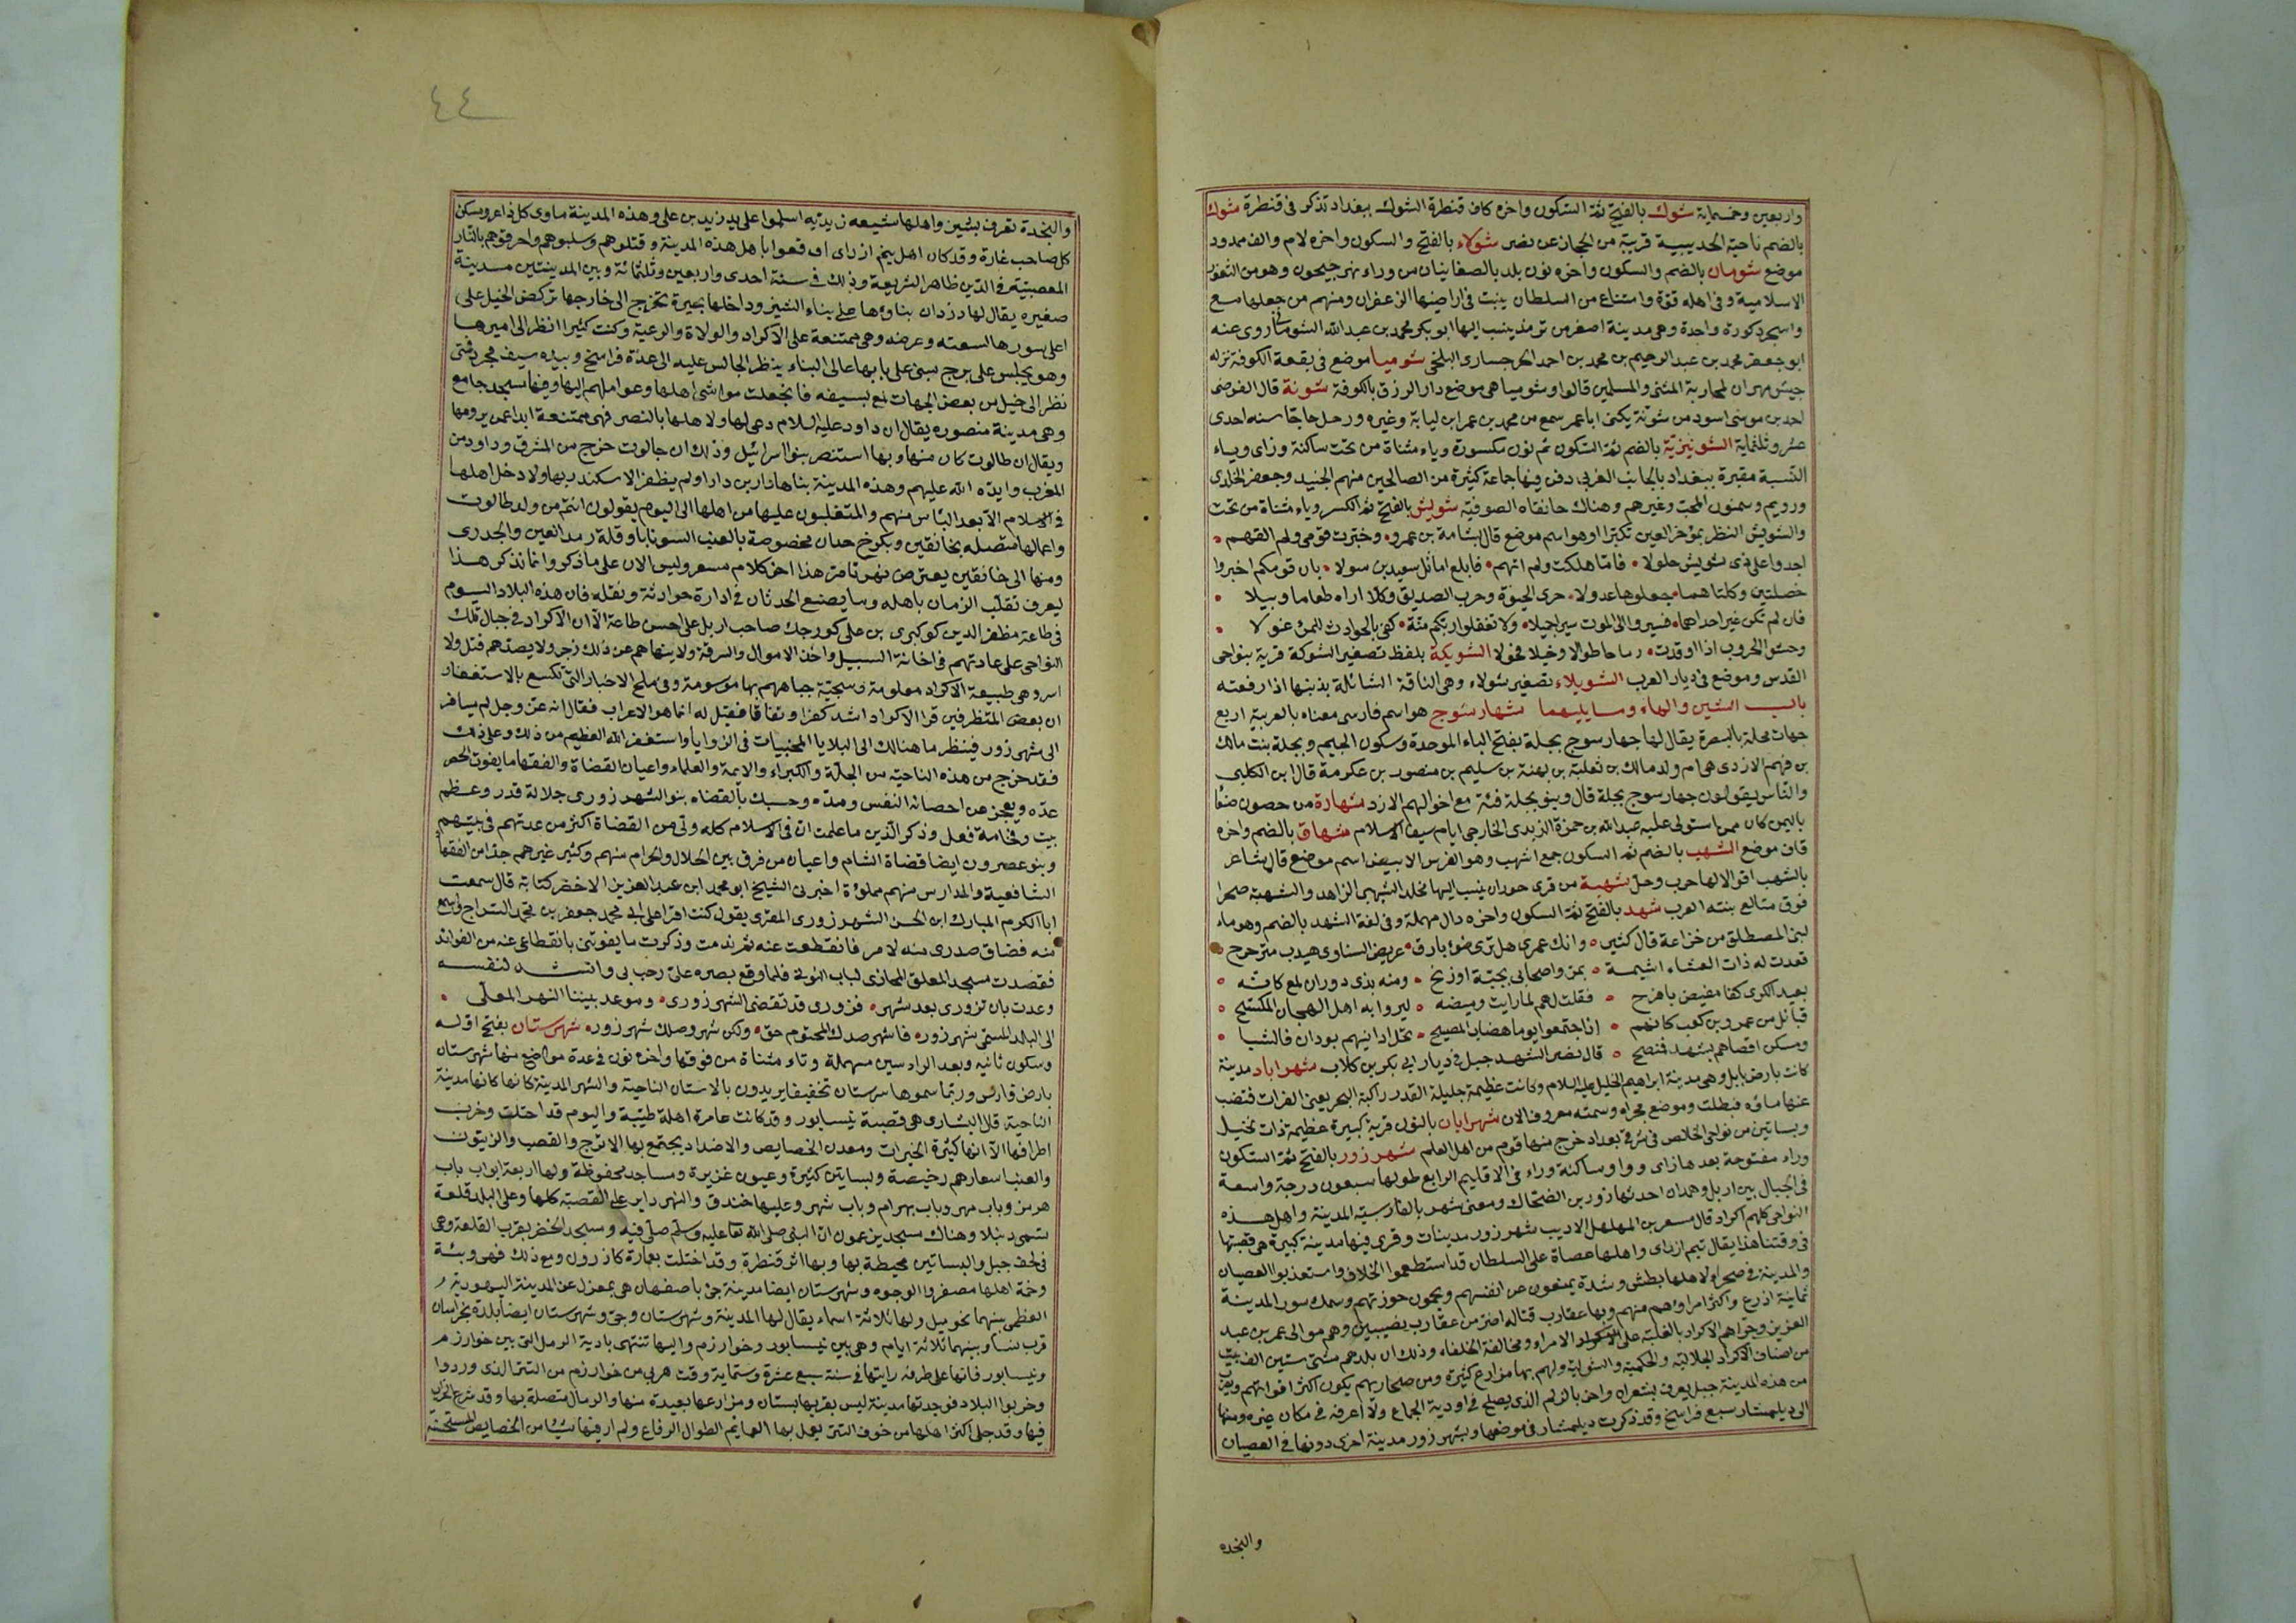 واربعين وخمسماية شوك بالفتح ثم السكون واخره كاف قنطرة الشوك ببغداد تذكر في قنطرة شوك
بالضم ناحية الحديبية قريبة من الحجاز عن نصر شولاء بالفتح والسكون واخره لام والف ممدود
موضع شومان بالضم والسكون واخره نون بلد بالصغانيان من وراء نهر جيحون وهو من الثغور
الاسلامية وفي اهله قوة وامتناع من السلطان ينبت في اراضيها الزعفران ومنهم من جعلها مع
واسجرد كورة واحدة وهي مدينة اصغر من ترمذ ينسب اليها ابو بكر محمد بن عبد الله الشوماني روى عنه
ابو جعفر محمد بن عبد الرحيم بن محمد بن احمد البلخي شوميا موضع في بقعة الكوفة نزله
جيش مهران لمحاربة المثنى والمسلمين قالوا وشوميا هي موضع دار الرزق بالكوفة شونة قال الفرضي
احد بن موسى اسود من شونة يكنى ابا عمر سمع من محمد بن عمر ابن لبابة وغيره ورحل حاجا سنه احدى
عشر وثلثماية الشونيزية بالضم ثم السكون ثم نون مكسورة وياء مثناة من تحت ساكنة وزاى وياء
النسبة مقبرة ببغداد بالجانب الغربي دفن فيها جماعة كثيرة من الصالحين منهم الجنيد وجعفر الخلدى
ورويم وسمنون المحب وغيرهم وهناك خانقاه الصوفية شويش بالفتح ثم الكسر وياء مثناة من تحت
والشويش النظر بمؤخر العين تكبرا وهو اسم موضع قال بشامة بن عمرو وخبرت قومي ولم القهم
اجدوا على ذى شويش حلولا فاما هلكت ولم اتهم فابلغ اماثل سعيد بن سولا بان قومكم اخيروا
خصلتين وكلتاهما جعلوها عدولا حرى الحيوة وحرب الصديق وكلا اراه طعاما وبيلا
فان لم تكن غير احداهما فسيروا الى الموت سيرا جميلا ولا تقعدوا وبكم منة كفى بالحوادث للمرء غولا
وحشوا الحروب اذا اوقدت رماحا طوالا وخيلا فحولا الشويكة بلفظ تصغير الشوكة قرية بنواحي
القدس وموضع في ديار العرب الشويلاء تصغير شولاء وهي الناقة الشائلة بذنبها اذا رفعته
باب الشين والهاء وما يليهما شهارسوج هو اسم فارسي معناه بالعربية اربع
جهات محلة بالبصرة يقال لها جهارسوج بجلة بفتح الباء الموحدة وسكون الجيم وبجلة بنت مالك
بن فهم الازدى هي ام ولد مالك بن ثعلبة بن بهثة بن سليم بن منصور بن عكرمة قال ابن الكلبي
والناس يقولون جهارسوج بجلة قال وبنو بجلة فئة مع اخوالهم الازد شهارة من حصون صنعا
باليمن كان ممن استولى عليه عبد الله بن حمزة الزيدى الخارجي ايام سيف الاسلام شهاق بالضم واخره
قاف موضع الشهب بالضم ثم السكون جمع اشهب وهو الفرس الابيض اسم موضع قال شاعر
بالشهب اقوالا لها حرب وحل شهبة من قرى حوران ينسب اليها مخلد الشهبي الزاهد والشهبة صحرا
فوق متالع بنته العرب شهد بالفتح ثم السكون واخره دال مهملة وفي لغة الشهد بالضم وهو ماء
لبني المصطلق من خزاعة قال كثير وانك عمرى هل ترى ضوء بارق عريض السنا وى هيدب متزحزح
قعدت له ذات العشاء اشيمه بمر واصحابي بجبة اوزخ ومنه بذى دوران لمع كانه
بعيد الكرى كفا مفيض باقدح فقلت لهم لما رايت وميضه ليروا به اهل الهجان المكسح
قبائل من عمرو بن كعب كانهم اذا اجتمعوا يوما هضاب المضيح تحل ادانيهم بودان فالشبا
ومسكن اقصاهم بشهد فنصح قال نصر الشهد جبل في ديار ابي بكر بن كلاب شهراباد مدينة
كانت بارض بابل وهي مدينة ابراهيم الخليل عليه السلام وكانت عظيمة جليلة القدر راكبة البحر يعني الفرات فنضب
عنها ماؤه فبطلت وموضع مجراه وسمته معروف الان شهرابان بالنون قرية كبيرة عظيمة ذات نخيل
وبساتين من نواحي الخالص في شرقي بغداد خرج منها قوم من اهل العلم شهرزور بالفتح ثم السكون
وراء مفتوحة بعدها زاى وواو ساكنة وراء في الاقليم الرابع طولها سبعون درجة واسعة
في الجبال بين اربل وهمدان احدثها زور بن الضحاك ومعنى شهر بالفارسية المدينة واهل هذه
النواحي كلهم اكراد قال مسعر بن المهلهل الاديب شهرزور مدينات وقرى فيها مدينة كبيرة هي قصبتها
في وقتنا هذا يقال نيم ازراى واهلها عصاة على السلطان قد استطعموا الخلاف واستعذبوا العصيان
والمدينة في صحراء ولاهلها بطش وشدة يمنعون عن انفسهم ويحمون حوزتهم وسمك سور المدينة
ثمانية اذرع واكثر امراؤهم منهم وبها عقارب قتالة اضر من عقارب نصيبين وهم موالى عمر بن عبد
العزيز وجرأهم الاكراد بالغلبة على الامراء ومخالفة الخلفاء وذلك ان بلدهم مشتى ستين الف بيت
من اصناف الاكراد الجلالية والحكمية والسولية ولهم بها مزارع كثيرة ومن صحاريهم يكون اكثر اقواتهم وبقرب
من هذه المدينة جبل يعرف بشعران واخر بالزلم الذى يصلح في ادوية الجماع ولا اعرفه في مكان غيره ومنها
الى ديلمستان سبع فراسخ وقد ذكرت ديلمستان في موضعها وبشهرزور مدينة اخرى دونها في العصيان
والنجده
٤٤
والنجدة تعرف بشيز واهلها شيعه زيديه اسلموا على يد زيد بن على وهذه المدينة ماوى كل ذاعر ومسكن
كل صاحب غارة وقد كان اهل نيم ازراى اوقعوا باهل هذه المدينة وقتلوهم وسلبوهم واحرقوهم بالنار
للعصبية في الدين ظاهر الشريعة وذلك في سنة احدى واربعين وثلثمائة وبين المدينتين مدينة
صغيره يقال لها دزدان بناؤها على بناء الشيز وداخلها بحيرة تخرج الى خارجها تركض الخيل على
اعلى سورها لسعته وعرضه وهي ممتنعة على الاكراد والولاة والرعية وكنت كثيرا انظر الى اميرها
وهو يجلس على برج مبني على بابها عالى البناء ينظر الجالس عليه الى عدة فراسخ وبيده سيف مجرد فمتى
نظر الى خيل من بعض الجهات لمع بسيفه فانجفلت مواشي اهلها وعواملهم اليها وفيها مسجد جامع
وهي مدينة منصوره يقال ان داود عليه السلام دعى لها ولاهلها بالنصر فهي ممتنعة ابدا عمن يرومها
ويقال ان طالوت كان منها وبها استنصر بنو اسرائيل وذلك ان جالوت خرج من المشرق وداود من
المغرب وايده الله عليهم وهذه المدينة بناها دارا بن دارا ولم يظفر الاسكندر بها ولا دخل اهلها
في الاسلام الا بعد الياس منهم والمتغلبون عليها من اهلها الى اليوم يقولون انهم من ولد طالوت
واعمالها متصله بخانقين وبكرخ جدان مخصوصة بالعنب السونايا وقلة رمد العين والجدرى
ومنها الى خانقين يعترض نهر تامرا هذا اخر كلام مسعر وليس الان على ما ذكر وانما نذكر هذا
ليعرف تقلب الزمان باهله وما يصنع الحدثان في ادارة حوادثه ونقله فان هذه البلاد اليوم
في طاعة مظفر الدين كوكبرى بن على كوجك صاحب اربل على احسن طاعة الا ان الاكراد في جبال تلك
النواحى على عادتهم في اخافة السبيل واخذ الاموال والسرقة ولا ينهاهم عن ذلك زجر ولا يصدهم قتل ولا
اسر وهي طبيعة الاكراد معلومة وسجية جباههم بها موسومة وفي ملح الاخبار التي تكسع بالاستغفار
ان بعض المتظرفين قرا الاكراد اشد كفرا ونفاقا فقيل له انما هو الاعراب فقال انه عز وجل لم يسافر
الى شهرزور فينظر ما هنالك الى البلايا المخبيات في الزوايا واستغفر الله العظيم من ذلك وعلى ذلك
فقد خرج من هذه الناحية من الجلة والكبراء والايمة والعلماء واعيان القضاة والفقها ما يفوت الحصر
عده ويعجز عن احصائه النفس ومده وحسبك بالقضاه بنو الشهرزورى جلالة قدر وعظم
بيت وفخامة فعل وذكر الذين ما علمت ان في الاسلام كله ولى من القضاة اكثر من عدتهم في بيتهم
وبنو عصرون ايضا قضاة الشام واعيان من فرق بين الحلال والحرام منهم وكثير غيرهم جدا من الفقها
الشافعية والمدارس منهم مملؤة اخبرني الشيخ ابو محمد ابن عبد العزيز الاخضر كتابة قال سمعت
ابا الكرم المبارك ابن الحسن الشهرزورى المقرى يقول كنت اقرا على ابي محمد جعفر بن محمد السراج واسمع
منه فضاق صدرى منه لامر فانقطعت عنه ثم ندمت وذكرت ما يفوتني بانقطاعي عنه من الفوائد
فقصدت مسجد المعلق المحاذى لباب النوبي فلما وقع بصره علي رحب بي وانشد لنفسه
وعدت بان تزورى بعد شهر فزورى قد تقضى الشهر زورى وموعد بيننا النهر المعلى
الى البلد المسمى شهرزور فاشهر صدك المحتوم حق ولكن شهر وصلك شهر زور شهرستان بفتح اوله
وسكون ثانيه وبعد الراء سين مهملة وتاء مثناة من فوقها واخره نون في عدة مواضع منها شهرستان
بارض فارس وربما سموها شرستان تخفيفا يريدون بالاستان الناحية والشهر المدينة كانها مدينة
الناحية قال البشارى هي قصبة نيسابور وقد كانت عامرة اهلة طيبة واليوم قد اختلت وخرب
اطرافها الا انها كثيرة الخيرات ومعدن الخصايص والاضداد يجتمع بها الاترج والقصب والزيتون
والعنب اسعارهم رخيصة وبساتين كثيرة وعيون غزيرة ومساجد محفوظة ولها اربعة ابواب باب
هرمز وباب مهر وباب بهرام وباب شهر وعليها خندق والنهر داير على القصبة كلها وعلى البلد قلعة
تسمى دنبلا وهناك مسجد يزعمون ان النبي صلى الله تعا عليه وسلم صلى فيه ومسجد الخضر بقرب القلعة وهي
في لحف جبل والبساتين محيطة بها وبها اثر قنطرة وقد اختلت بعمارة كازرون ومع ذلك فهي وبئة
وخمة اهلها مصفروا الوجوه وشهرستان ايضا مدينة جي باصفهان هي بمعزل عن المدينة اليهودية
العظمى بينهما نحو ميل ولها ثلاثة اسماء يقال لها المدينة وشهرستان وجي وشهرستان ايضا بلدة بخراسان
قرب نسا وبينهما ثلاثة ايام وهي بين نيسابور وخوارزم واليها تنتهى بادية الرمل التي بين خوارزم
ونيسابور فانها على طرفه رايتها في سنة سبع عشرة وستماية وقت هربي من خوارزم من التتر الذى وردوا
وخربوا البلاد فوجدتها مدينة ليس بقربها بستان ومزارعها بعيدة منها والرمال متصلة بها وقد شرع الخراب
فيها وقد جلى اكثر اهلها من خوف التتر يعمل بها العمائم الطوال الرفاع ولم ار فيها شيئا من الخصايص المستحسنة